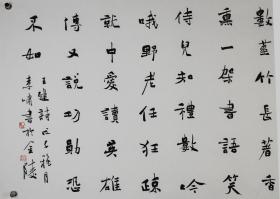 數莖竹長著香
熏一架書語笑
侍兒知禮數吟
哦野老任狂疎
就中愛讀英雄
傳又說功勳恐
不如
王建詩
書於金陵